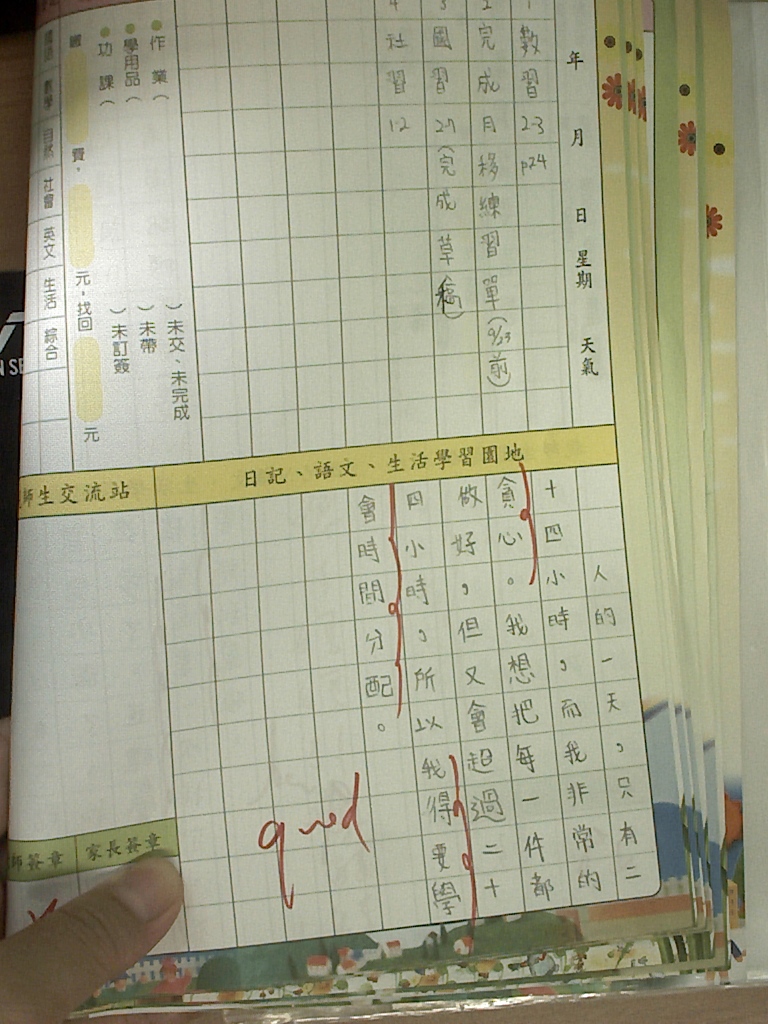 年 月 日 星期 天氣
1 數習 2-3 p24
2 完成月移練習單(9/23前)
3 國習 2-7(完成草稿)
4 社習 1-2
作業( )未交、未完成
學用品( )未帶
功課( )未訂簽
繳 費, 元,找回 元
數學 自然 社會 英文 生活 綜合
日記、語文、生活學習園地
人的一天,只有二
十四小時,而我非常的
貪心。我想把每一件都
做好,但又會超過二十
四小時,所以我得要學
會時間分配。
good
師生交流站
家長簽章
師簽章